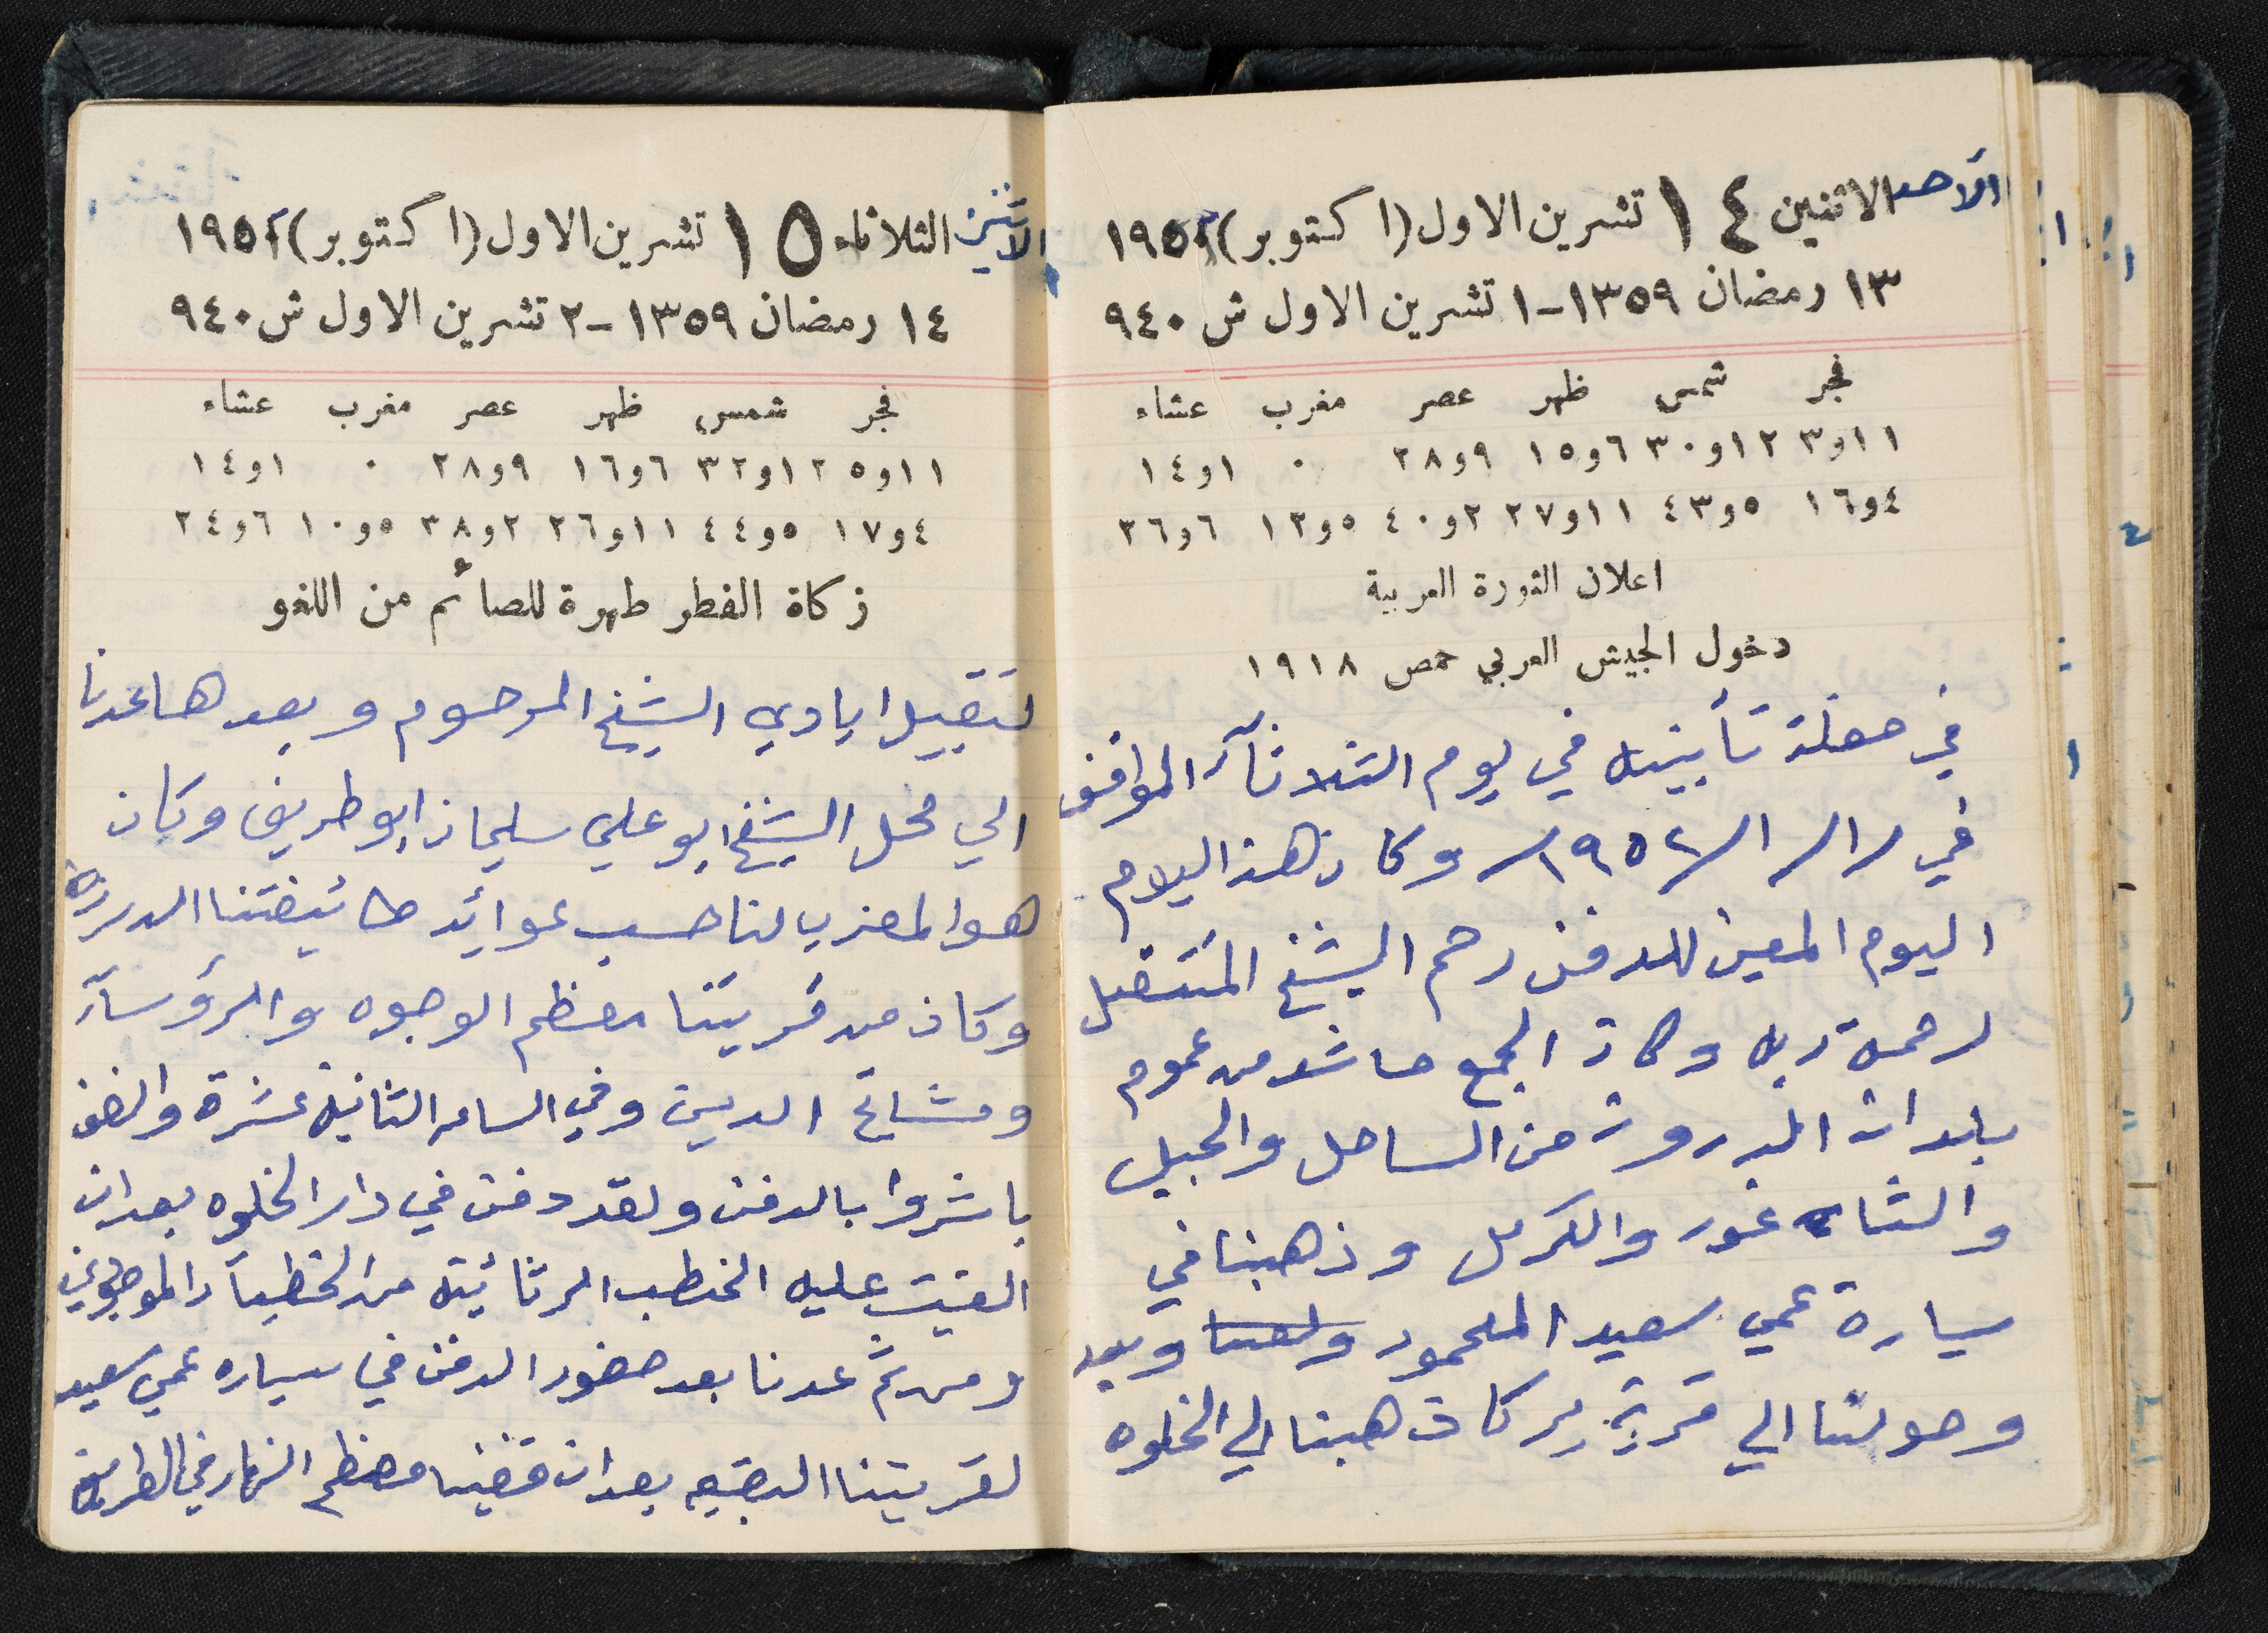 الأحد الاثنين ١٤ تشرين الاول (اكتوبر) ١٩٥١
١٣ رمضان ١٣٥٩ - ١ تشرين الاول ش ٩٤٠
فجر شمس ظهر عصر مغرب عشاء
١١و٣ ١٢و٣٠ ٦و١٥ ٩و٢٨ ٠ ١و١٤
٤و١٦ ٥و٤٣ ١١و٢٧ ٢و٤٠ ٥و١٢ ٦و٢٦
اعلان الثورة العربية
دخول الجيش العربي حمص ١٩١٨
في حفلة تأبينه في يوم الثلاثآء الموافق
في ١/١/١٩٥٢ وكان هذا اليوم
اليوم المعين للدفن رحم الشيخ المنتقل
لرحمة ربه وكان الجمع حاشد من عموم
بلدان الدروز من الساحل والجبل
والشاغور والكرمل وذهبنا في
سيارة عمي سعيد المحمود وبعد
وصولنا الي قرية بركا ذهبنا الي الخلوه
الاثنين الثلاثاء ١٥ تشرين الاول (اكتوبر) ١٩٥١
١٤ رمضان ١٣٥٩ - ٢ تشرين الاول ش ٩٤٠
فجر شمس ظهر عصر مغرب عشاء
١١و٥ ١٢و٣٢ ٦و١٦ ٩و٢٨ ٠ ١و١٤
٤و١٧ ٥و٤٤ ١١و٢٦ ٢و٣٨ ٥و١٠ ٦و٢٤
زكاة الفطر طهرة للصائم من اللغو
لتقبيل ايادي الشيخ المرحوم وبعدها عدنا
الي محل الشيخ ابو علي سليمان ابو طريف وكان
هو المعزب لنا حسب عوائد طائيفتنا الدرزية
وكان من قريتنا معظم الوجوه والرؤوسآء
ومشايخ الدين وفي الساعه الثانية عشرة والنصف
باشروا بالدفن ولقد دفن في دار الخلوه بعد ان
القيت عليه الخطب الرثائيه من الخطبآء الموجودين
ومن ثم عدنا بعد حضور الدفن في سياره عمي سعيد
لقريتنا البقيعه بعد ان قضينا معظم النهار في الطريق